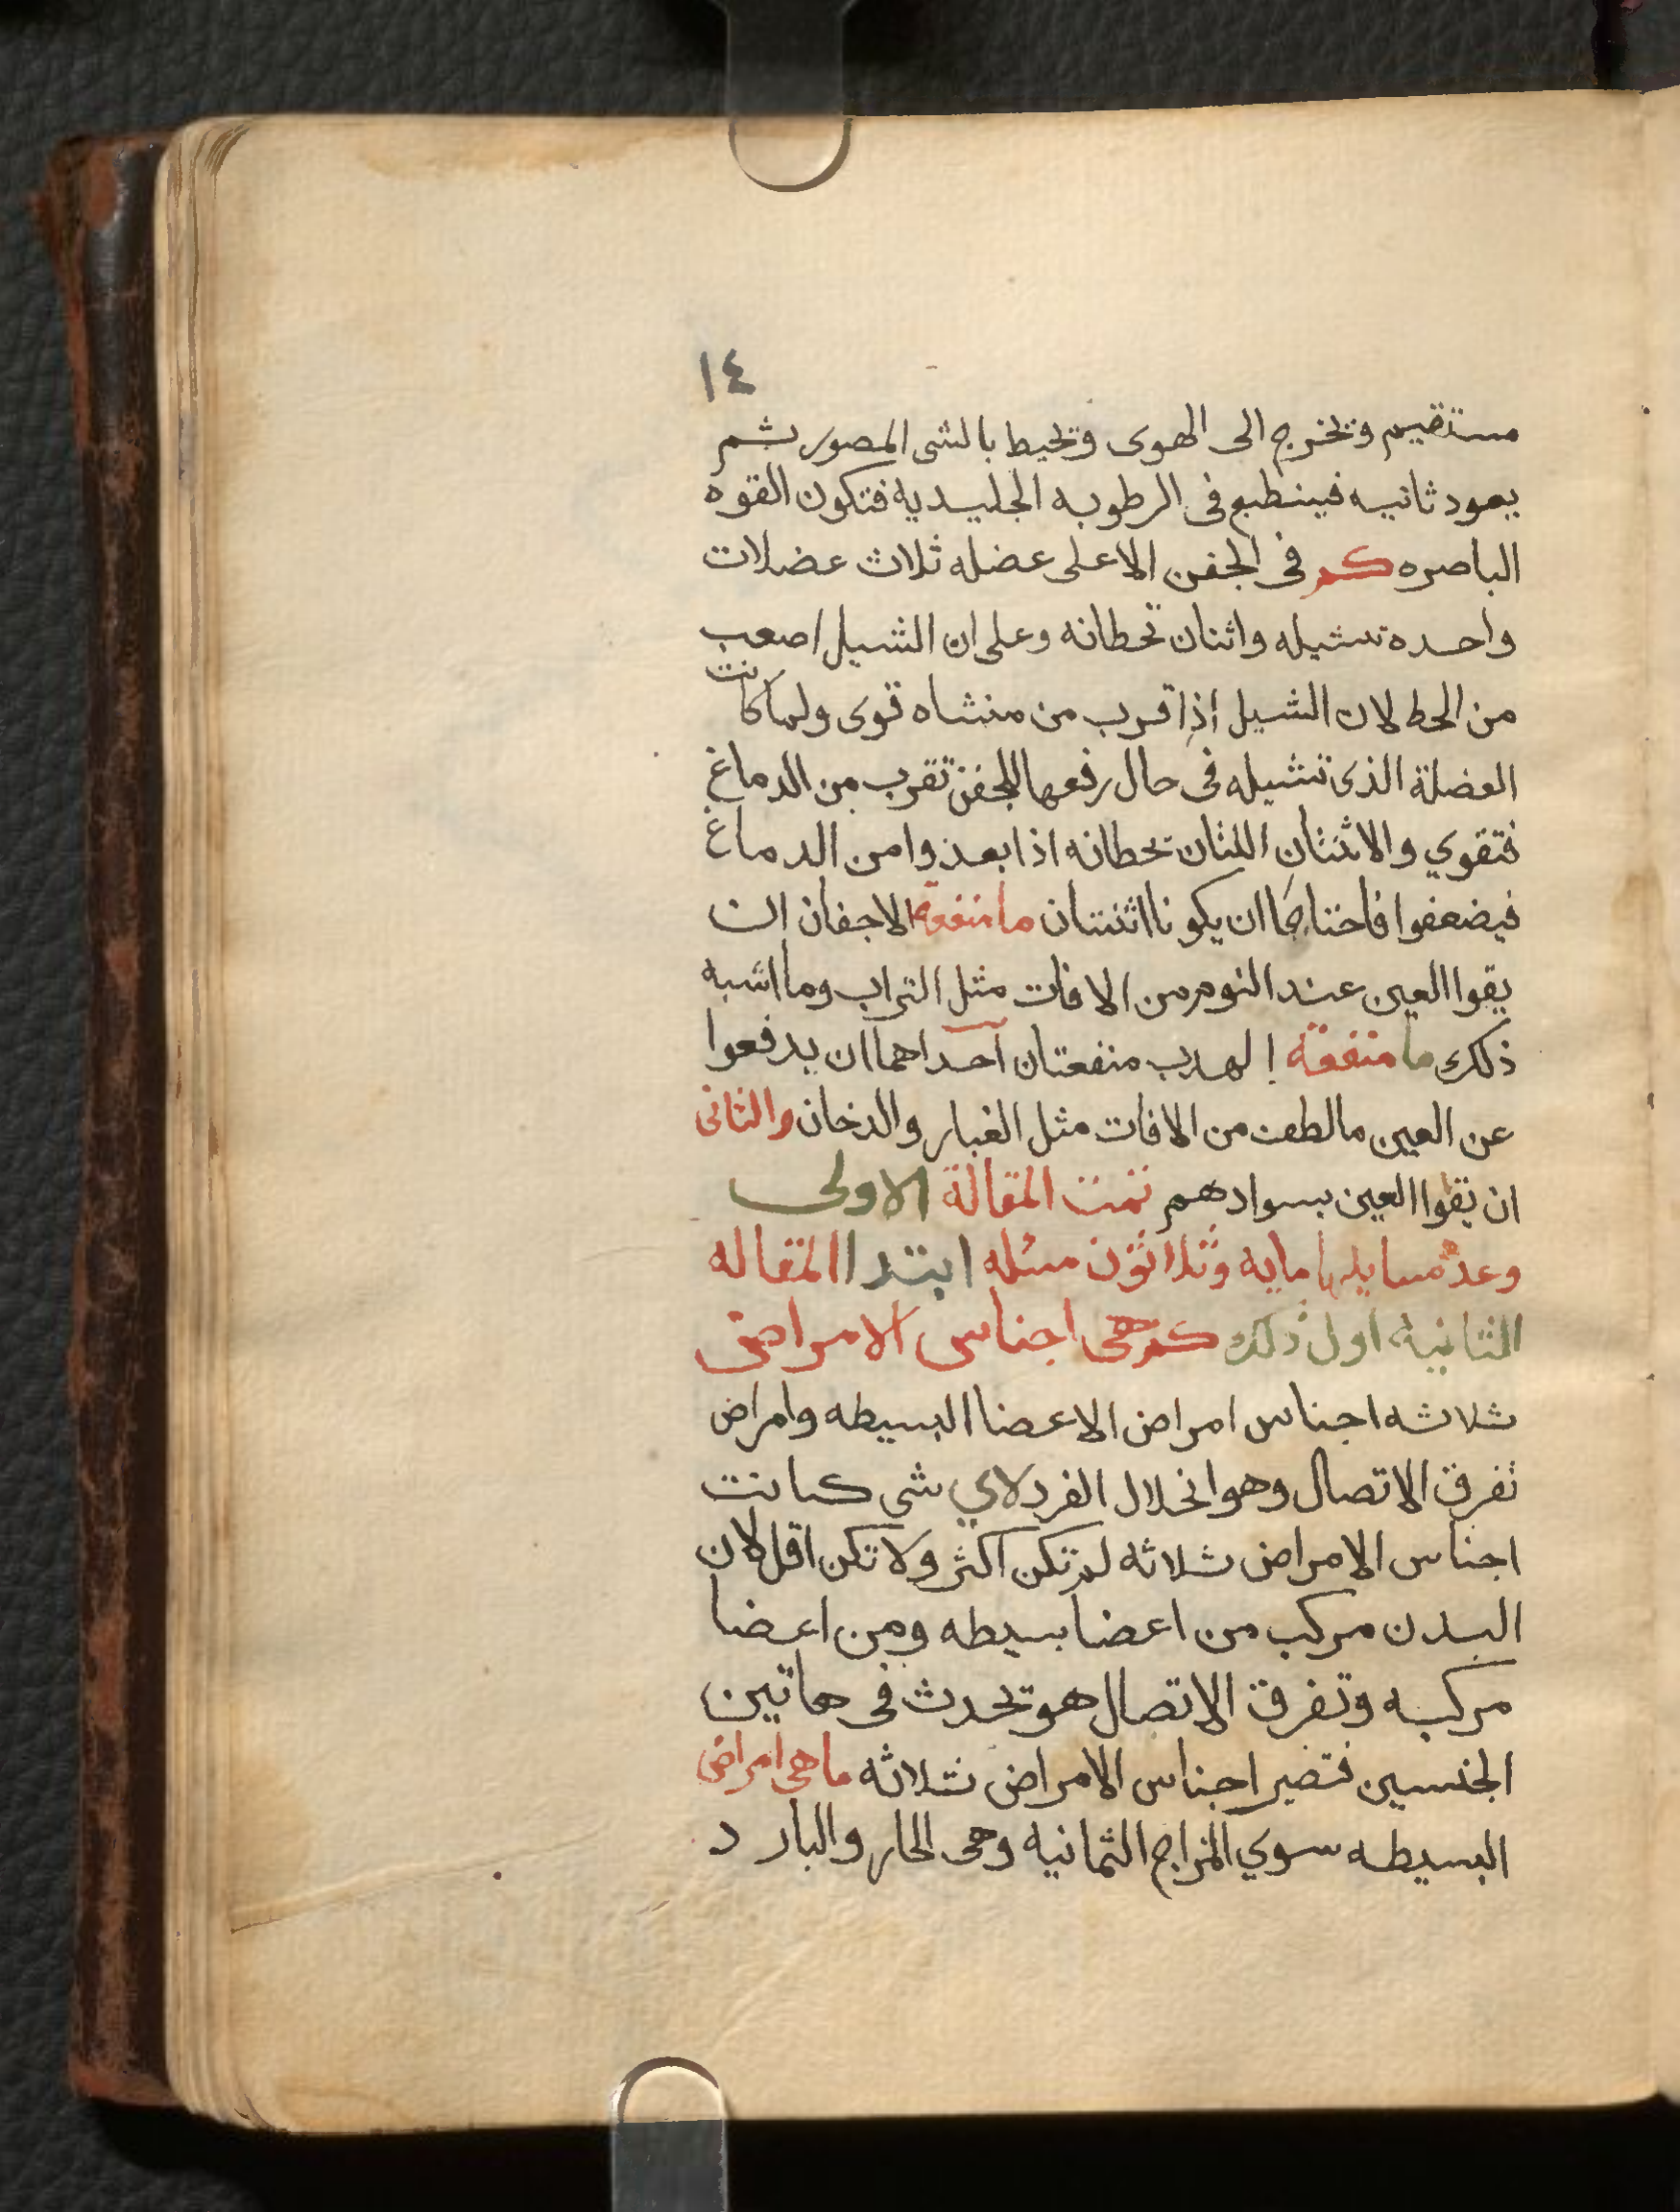 ١٤
مستقيم وتخرج الى الهوى وتحيط بالشى المصور ثم
يعود ثانيه فينطبع فى الرطوبه الجليديه فتكون القوه
الباصره كم فى الجفن الاعلى عضله ثلاث عضلات
واحده تشيله واثنان تحطانه وعلى ان الشيل اصعب
من الحط لان الشيل اذا قرب من منشاه قوى ولما كانت
العضلة الذى تشيله فى حال رفعها للجفن تقرب من الدماغ
فتقوي والاثنتان اللتان تحطانه اذا بعدوا من الدماغ
فيضعفوا فاحتاجا ان يكونا اثنتان ما منفعة الاجفان ان
يقوا العين عند النوم من الافات مثل التراب وما اشبه
ذلك ما منفعة الهدب منفعتان احداهما ان يدفعوا
عن العين ما لطف من الافات مثل الغبار والدخان والثانى
ان يقوا العين بسوادهم تمت المقالة الاولى
وعدة مسايلها مايه وثلاثون مسله ابتدا المقاله
الثانيه اول ذلك كم هى اجناس الامراض
ثلاثه اجناس امراض الاعضا البسيطه وامراض
تفرق الاتصال وهو انحلال الفرد لاي شى كانت
اجناس الامراض ثلاثه لم تكن اكثر ولا تكن اقل لان
البدن مركب من اعضا بسيطه ومن اعضا
مركبه وتفرق الاتصال هو تحدث فى هاتين
الجنسين فتصير اجناس الامراض ثلاثه ما هى امراض
البسيطه سوي المزاج الثمانيه وهى الحار والبارد